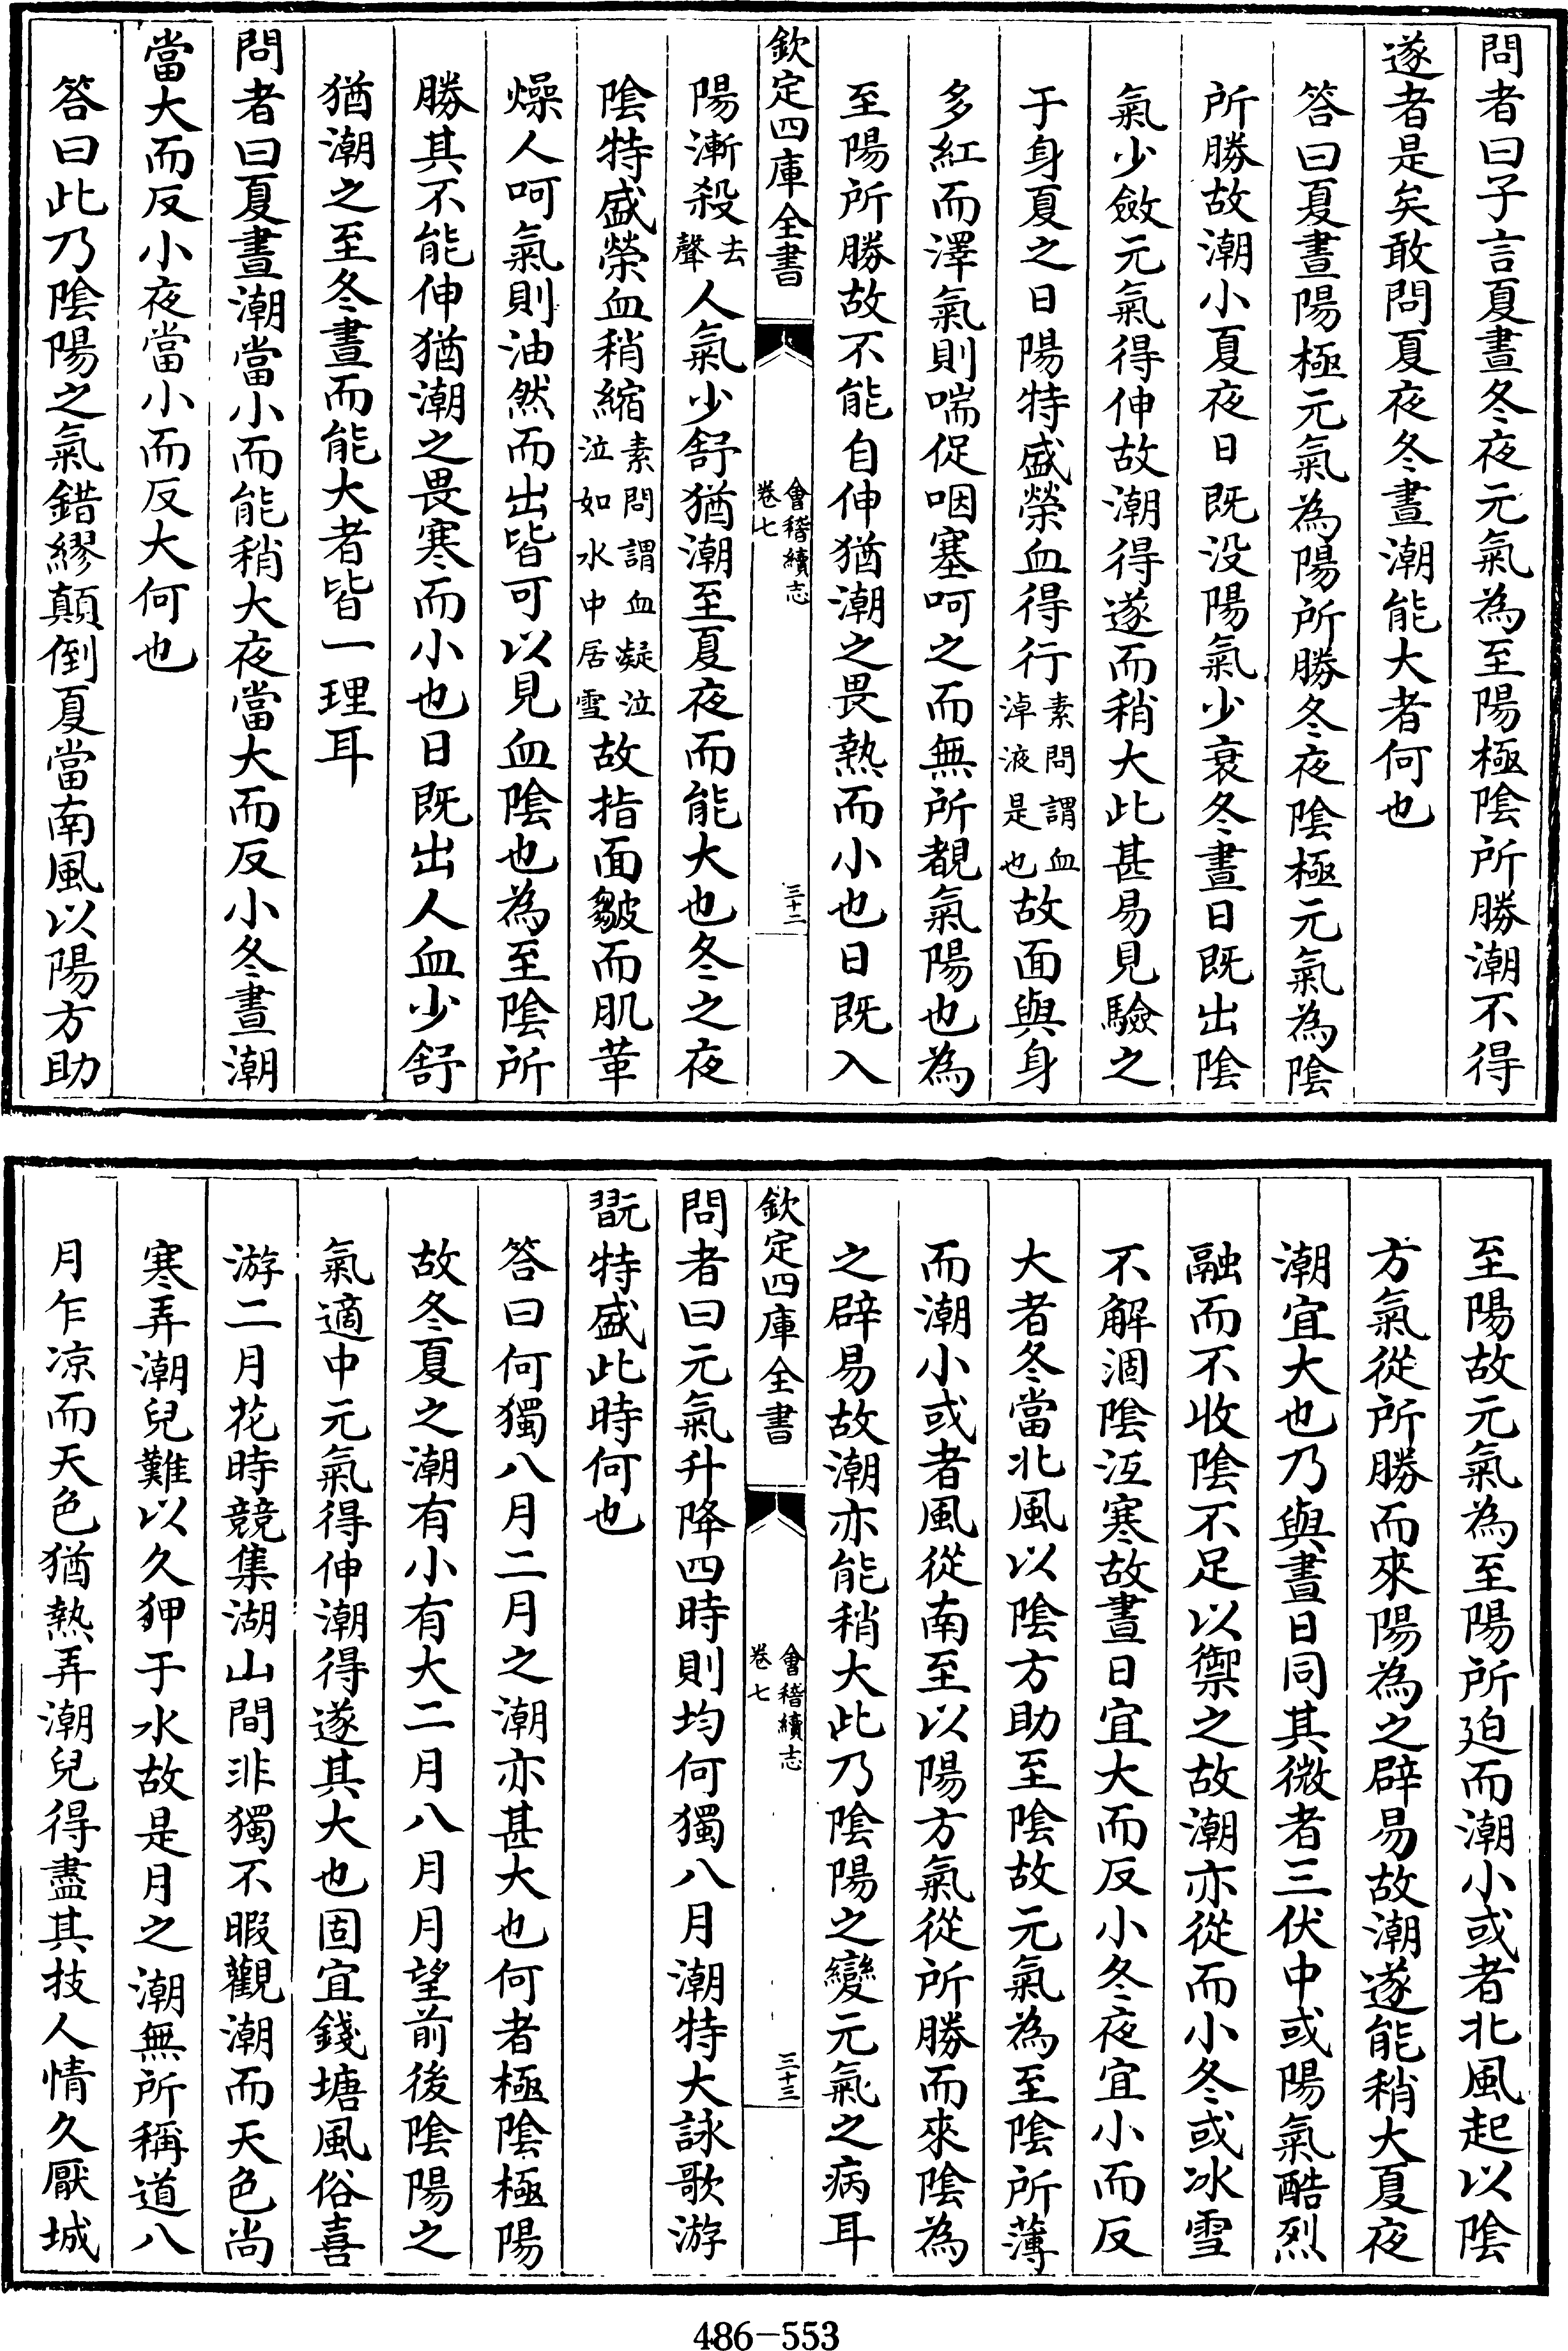 問者曰子言夏晝冬夜元氣為至陽極陰所勝潮不得
遂者是矣敢問夏夜冬晝潮能大者何也
答曰夏晝陽極元氣為陽所勝冬夜陰極元氣為陰
所勝故潮小夏夜日既没陽氣少衰冬晝日既出陰
氣少斂元氣得伸故潮得遂而稍大此甚易見驗之
于身夏之日陽特盛榮血得行素問謂血淖液是也故面與身
多紅而澤氣則喘促咽塞呵之而無所覩氣陽也為
至陽所勝故不能自伸猶潮之畏熱而小也日既入
欽定四庫全書
會稽續志
卷七
三十二
陽漸殺去聲人氣少舒猶潮至夏夜而能大也冬之夜
陰特盛榮血稍縮素問謂血凝泣泣如水中居雪故指面皺而肌革
燥人呵氣則油然而出皆可以見血陰也為至陰所
勝其不能伸猶潮之畏寒而小也日既出人血少舒
猶潮之至冬晝而能大者皆一理耳
問者曰夏晝潮當小而能稍大夜當大而反小冬晝潮
當大而反小夜當小而反大何也
答曰此乃陰陽之氣錯繆顛倒夏當南風以陽方助
至陽故元氣為至陽所廹而潮小或者北風起以陰
方氣從所勝而來陽為之辟易故潮遂能稍大夏夜
潮宜大也乃與晝日同其微者三伏中或陽氣酷烈
融而不收陰不足以禦之故潮亦從而小冬或冰雪
不解涸陰沍寒故晝日宜大而反小冬夜宜小而反
大者冬當北風以陰方助至陰故元氣為至陰所薄
而潮小或者風從南至以陽方氣從所勝而來陰為
之辟易故潮亦能稍大此乃陰陽之變元氣之病耳
欽定四庫全書
會稽續志
卷七
三十三
問者曰元氣升降四時則均何獨八月潮特大詠歌游
翫特盛此時何也
答曰何獨八月二月之潮亦甚大也何者極陰極陽
故冬夏之潮有小有大二月八月月望前後陰陽之
氣適中元氣得伸潮得遂其大也固宜錢塘風俗喜
游二月花時競集湖山間非獨不暇觀潮而天色尚
寒弄潮兒難以久狎于水故是月之潮無所稱道八
月乍凉而天色猶熱弄潮兒得盡其技人情久厭城
486-553